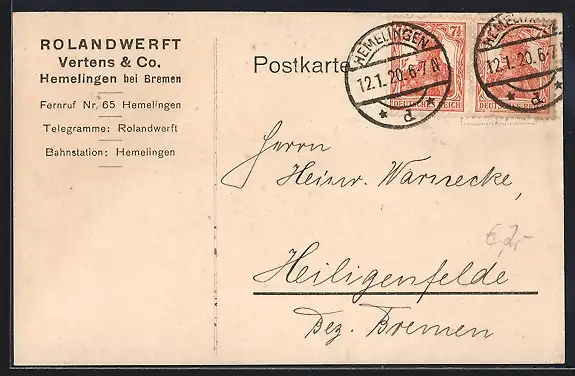 ROLANDWERFT
Vertens & Co.
Hemelingen bei Bremen
Fernruf Nr. 65 Hemelingen
Telegramme: Rolandwerft
Bahnstation: Hemelingen
Postkarte
HEMELINGEN
12.1.20.6-7N
* d *
7½
DEUTSCHES REICH
HEMELINGEN
12.1.20.6-7N
* d *
DEUTSCHES REICH
Herrn
Heinr. Warnecke,
€ 2,-
Heiligenfelde
Bez. Bremen